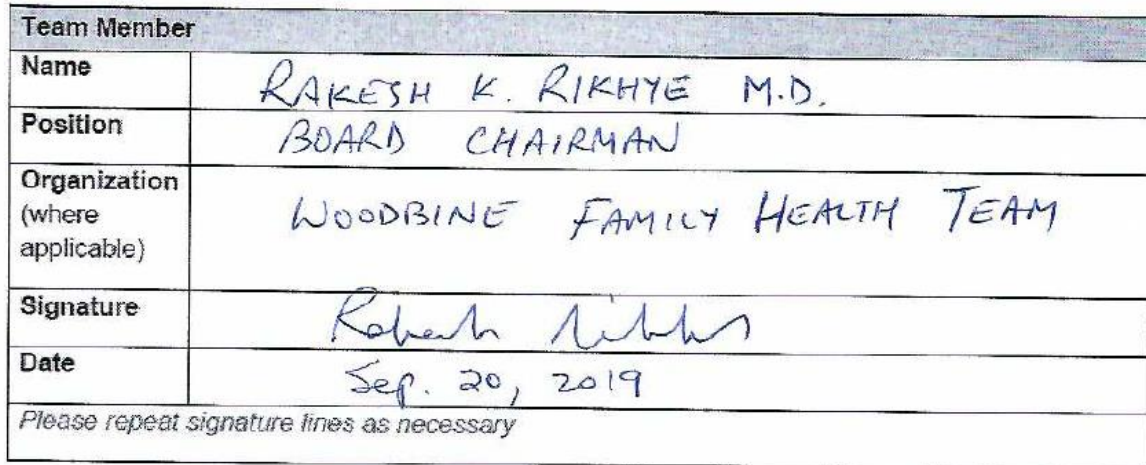 Team Member
Name RAKESH K. RIKHYE M.D.
Position BOARD CHAIRMAN
Organization
(where
applicable) WOODBINE FAMILY HEALTH TEAM
Signature
Date Sep. 20, 2019
Please repeat signature lines as necessary